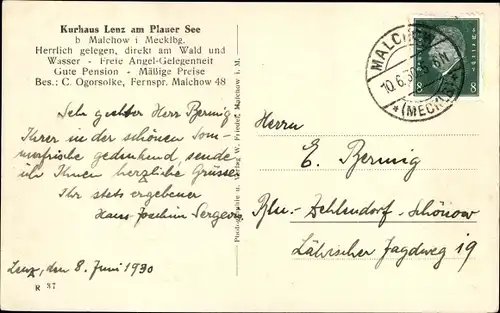 Kurhaus Lenz am Plauer See
b Malchow i Mecklbg.
Herrlich gelegen, direkt am Wald und
Wasser - Freie Angel-Gelegenheit
Gute Pension - Mäßige Preise
Bes.: C. Ogorsolke, Fernspr. Malchow 48
Sehr geehrter Herr Bernig
Ihrer in der schönen Som-
merfrische gedenkend, sende
ich Ihnen herzliche Grüsse
Ihr stets ergebener
Hans Joachim
Lenz, den 8. Juni 1930
R 37
Malchow i. M.
MALCHOW
10.6.30
*(MECKLB)*
8 8
Herrn
E. Bernig
Bln.-Zehlendorf-Schönow
Jagdweg 19